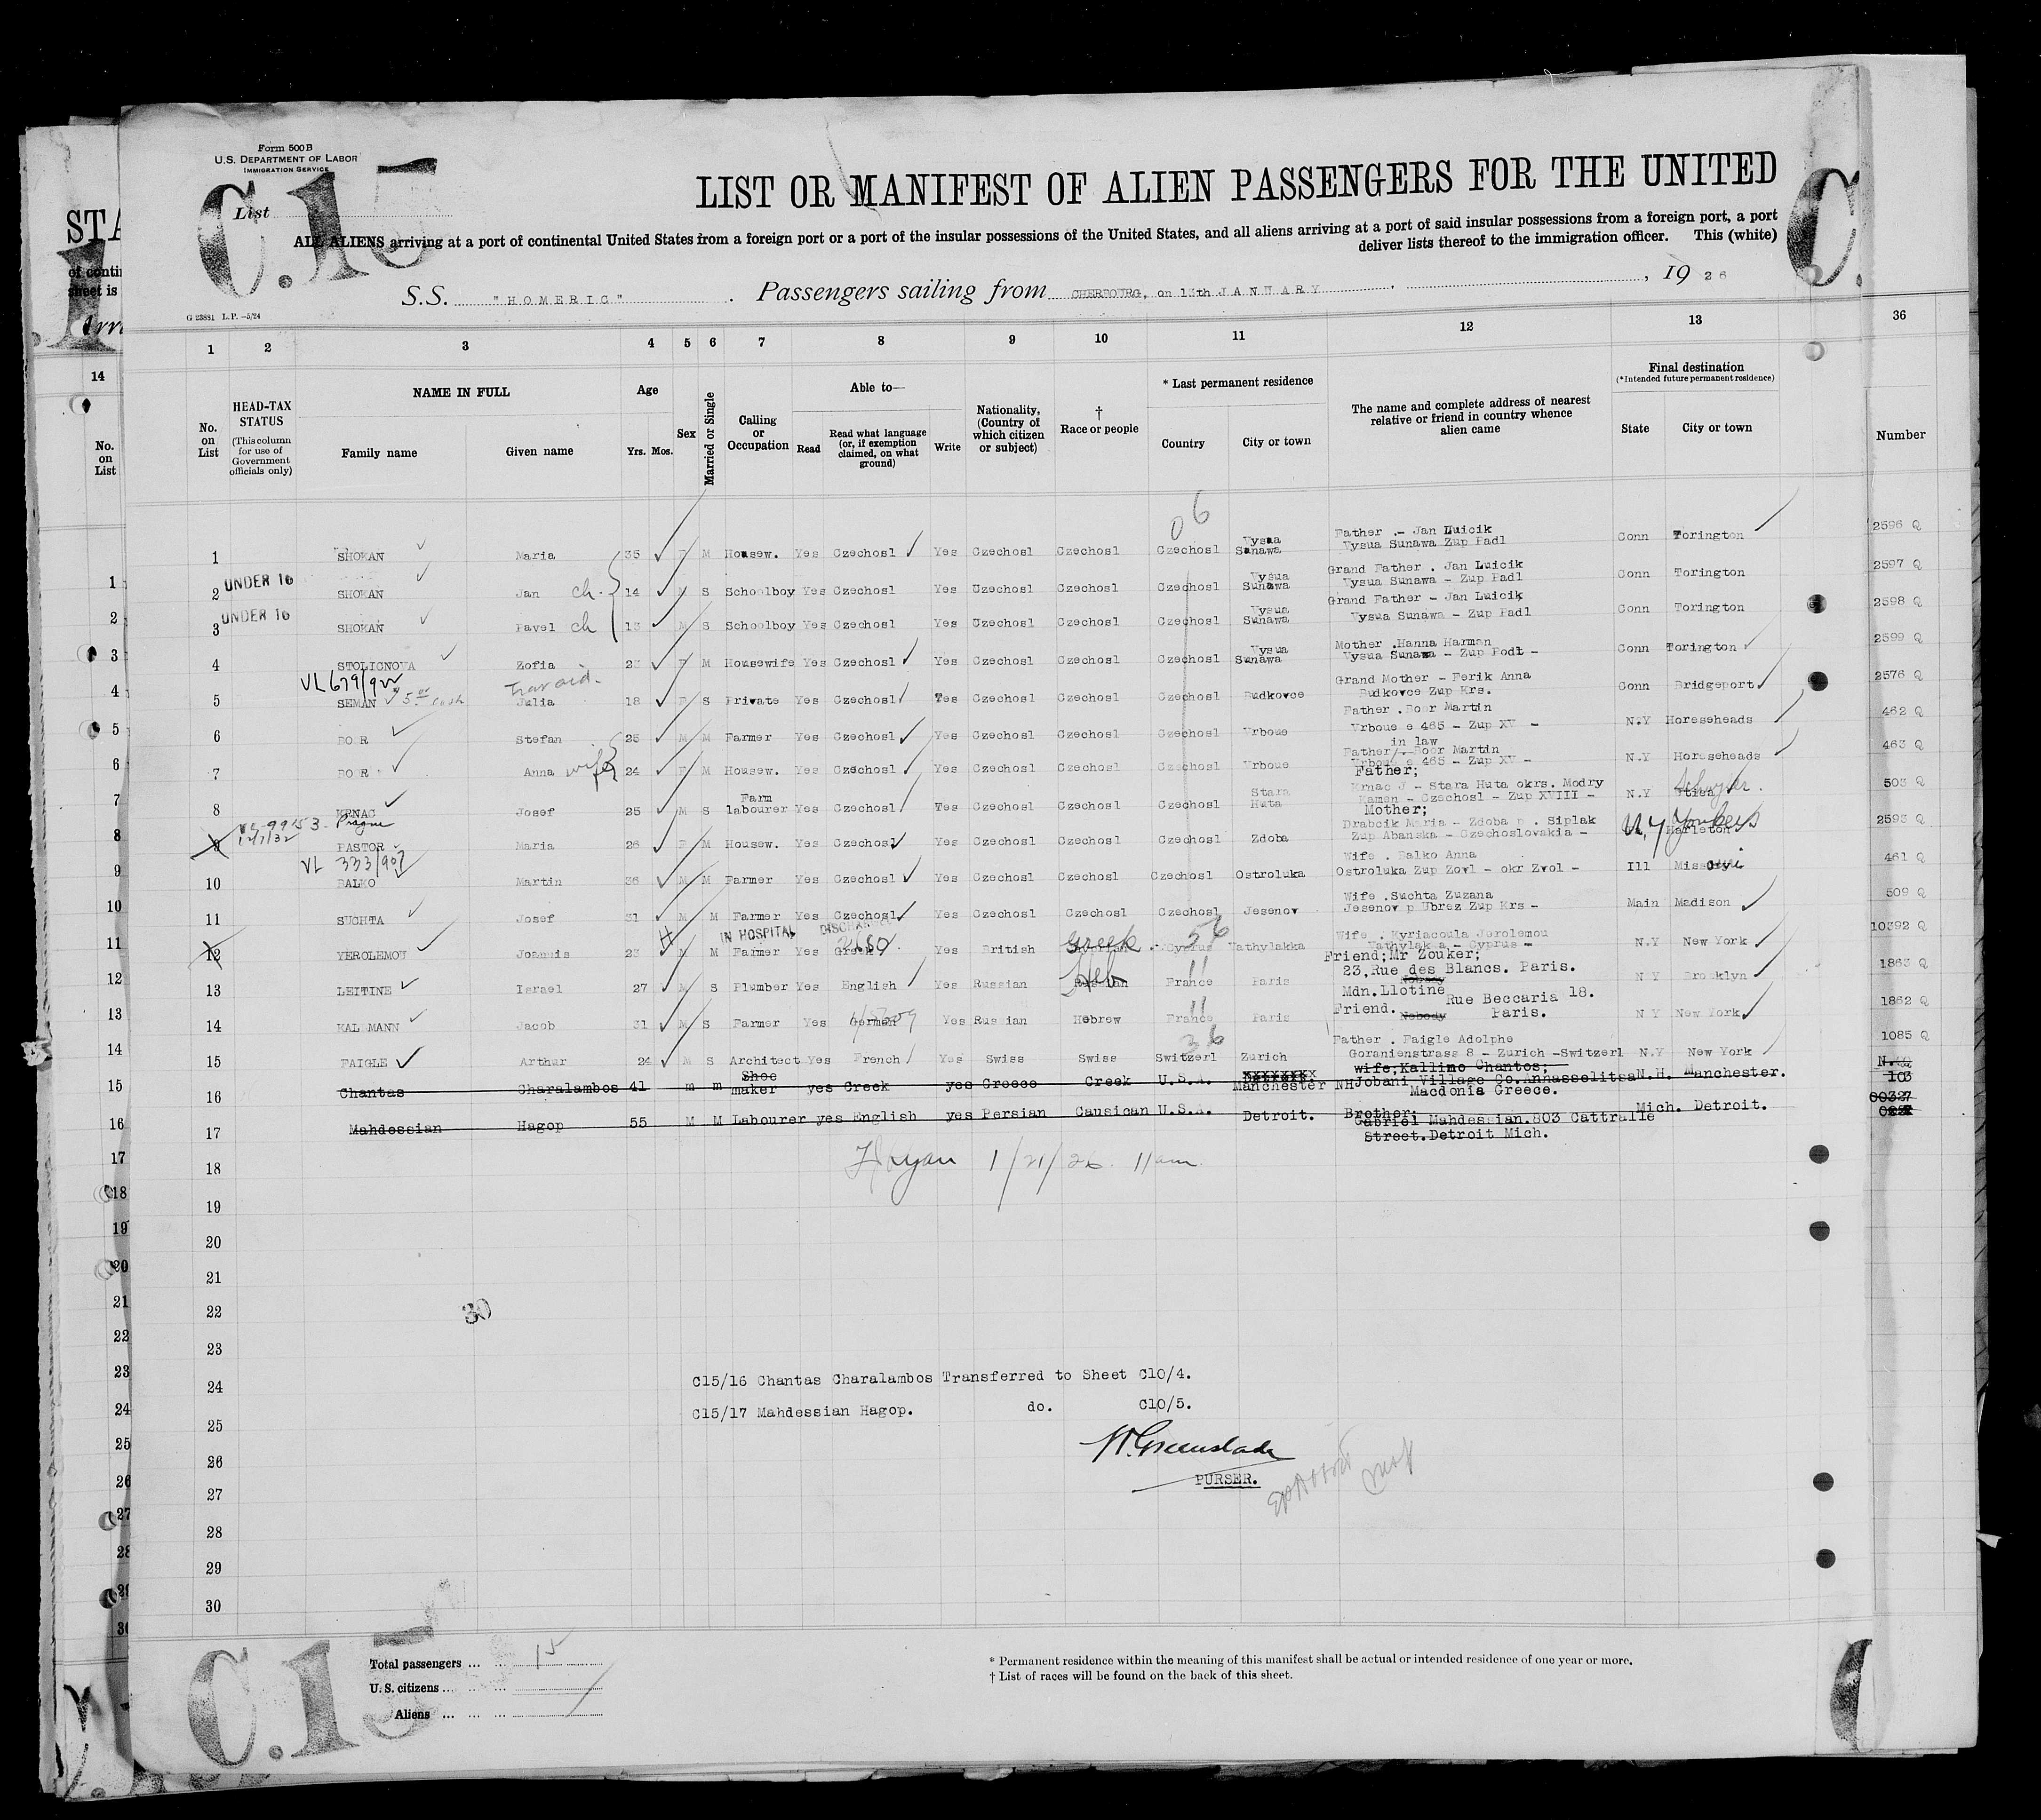 Form 500B
U.S. DEPARTMENT OF LABOR
IMMIGRATION SERVICE
C.15
List
LIST OR MANIFEST OF ALIEN PASSENGERS FOR THE UNITED
ALL ALIENS arriving at a port of continental United States from a foreign port or a port of the insular possessions of the United States, and all aliens arriving at a port of said insular possessions from a foreign port, a port
deliver lists thereof to the immigration officer. This (white)
S.S. "HOMERIC". Passengers sailing from CHERBOURG, on 13th JANUARY, 1926
G 23881 L.P.—5/24
1 2 3 4 5 6 7 8 9 10 11 12 13 36
No. on List
HEAD-TAX STATUS
(This column for use of Government officials only)
NAME IN FULL
Family name Given name
Age
Yrs. Mos.
Sex
Married or Single
Calling or Occupation
Able to—
Read
Read what language (or, if exemption claimed, on what ground)
Write
Nationality, (Country of which citizen or subject)
† Race or people
* Last permanent residence
Country City or town
The name and complete address of nearest relative or friend in country whence alien came
Final destination
(*Intended future permanent residence)
State City or town
Number
06
1 SHOKAN Maria 35 F M Housew. Yes Czechosl Yes Czechosl Czechosl Czechosl Vysua Sunawa Father .- Jan Luicik Vysua Sunawa Zup Padl Conn Torington 2596 Q
2 UNDER 16 SHOKAN Jan ch. 14 M S Schoolboy Yes Czechosl Yes Uzechosl Czechosl Czechosl Vysua Sunawa Grand Father . Jan Luicik Vysua Sunawa - Zup Padl Conn Torington 2597 Q
3 UNDER 16 SHOKAN Pavel ch 13 M S Schoolboy Yes Czechosl Yes Uzechosl Czechosl Czechosl Vysua Sunawa Grand Father - Jan Luicik Vysua Sunawa - Zup Padl Conn Torington 2598 Q
4 STOLICNOVA Zofia F M Housewife Yes Czechosl Yes Czechosl Czechosl Czechosl Vysua Sunawa Mother .Hanna Harman Vysua Sunawa - Zup Podl - Conn Torington 2599 Q
VL 679/9
5 SEMAN Julia 18 F S Private Yes Czechosl Yes Czechosl Czechosl Czechosl Budkovce Grand Mother - Ferik Anna Budkovce Zup Krs. Conn Bridgeport 2576 Q
6 BOOR Stefan 25 M M Farmer Yes Czechosl Yes Czechosl Czechosl Czechosl Vrboue Father .Boor Martin Vrboue e 465 - Zup XV - N.Y Horseheads 462 Q
7 BOOR Anna wife 24 F M Housew. Yes Czechosl Yes Czechosl Czechosl Czechosl Vrboue in law Father .- Boor Martin Vrboue e 465 - Zup XV - N.Y Horseheads 463 Q
8 KRNAC Josef 25 M S Farm labourer Yes Czechosl Yes Czechosl Czechosl Czechosl Stara Huta Father; Krnac J - Stara Huta okrs. Modry Kamen - Czechosl - Zup XVIII - N.Y 503 Q
Prague
9 PASTOR Maria 26 F M Housew. Yes Czechosl Yes Czechosl Czechosl Czechosl Zdoba Mother; Drabcik Maria - Zdoba p . Siplak Zup Abanska - Czechoslovakia - N.Y Yonkers Harleton 2593 Q
VL 333/907
10 BALKO Martin 36 M M Farmer Yes Czechosl Yes Czechosl Czechosl Czechosl Ostroluka Wife . Balko Anna Ostroluka Zup Zovl - okr Zvol - Ill 461 Q
11 SUCHTA Josef 31 M M Farmer Yes Czechosl Yes Czechosl Czechosl Czechosl Jesenov Wife .Suchta Zuzana Jesenov p Ubrez Zup Krs - Main Madison 509 Q
IN HOSPITAL DISCHARGED
12 YEROLEMOU Joannis 23 M M Farmer Yes Greek Yes British Greek Cyprus 56 Vathylakka Wife . Kyriacoula Jerolemou Vathylakka - Cyprus - N.Y New York 10392 Q
13 LEITINE Israel 27 M S Plumber Yes English Yes Russian Heb Russian France 11 Paris Friend;Mr Zouker; 23,Rue des Blancs. Paris. Nobody N Y Brooklyn 1863 Q
14 KALEMANN Jacob 31 M S Farmer Yes German Yes Russian Hebrew France 11 Paris Mdn.Llotine Rue Beccaria 18. Friend. Nobody Paris. N Y New York 1862 Q
15 FAIGLE Arthur 24 M S Architect Yes French Yes Swiss Swiss Switzerl 36 Zurich Father . Faigle Adolphe Goranienstrass 8 - Zurich -Switzerl N.Y New York 1085 Q
16 Chantas Charalambos 41 m m Shoe maker yes Greek yes Greece Greek U.S.A. Manchester NH wife;Kallino Chantos; Jobani Village Co.Annasselitsa Macdonia Greece. N.H. Manchester.
17 Mahdessian Hagop 55 M M Labourer yes English yes Persian Causican U.S.A. Detroit. Brother; Gabriel Mahdessian.803 Cattralle Street.Detroit Mich. Mich. Detroit.
18
1/21/26. 11 am
19
20
21
22 30
23
24
25
26
27
28
29
30
C15/16 Chantas Charalambos Transferred to Sheet C10/4.
C15/17 Mahdessian Hagop. do. C10/5.
PURSER.
Total passengers ... ... 15
U.S. citizens ... ...
Aliens ... ... ...
* Permanent residence within the meaning of this manifest shall be actual or intended residence of one year or more.
† List of races will be found on the back of this sheet.
C.15